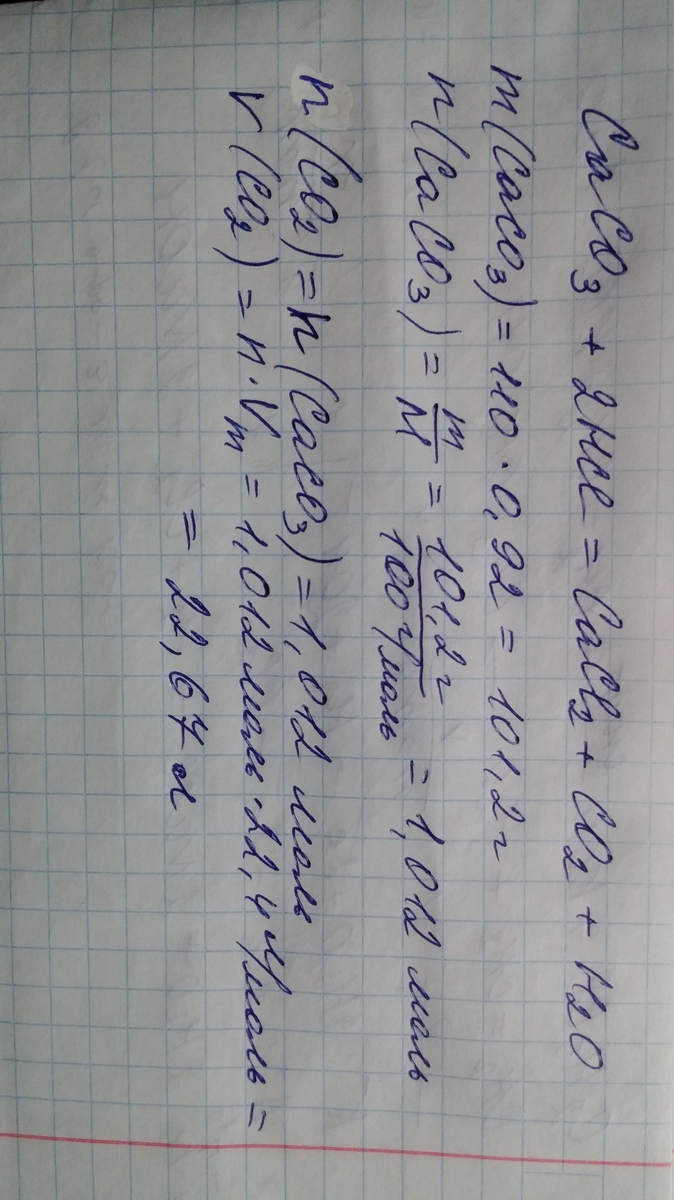 CaCO₃ + 2HCl = CaCl₂ + CO₂ + H₂O
m(CaCO₃) = 110 · 0,92 = 101,2 г
n(CaCO₃) = m/M = 101,2 г/100 г/моль = 1,012 моль
n(CO₂) = n(CaCO₃) = 1,012 моль
V(CO₂) = n · Vm = 1,012 моль · 22,4 л/моль =
= 22,67 л